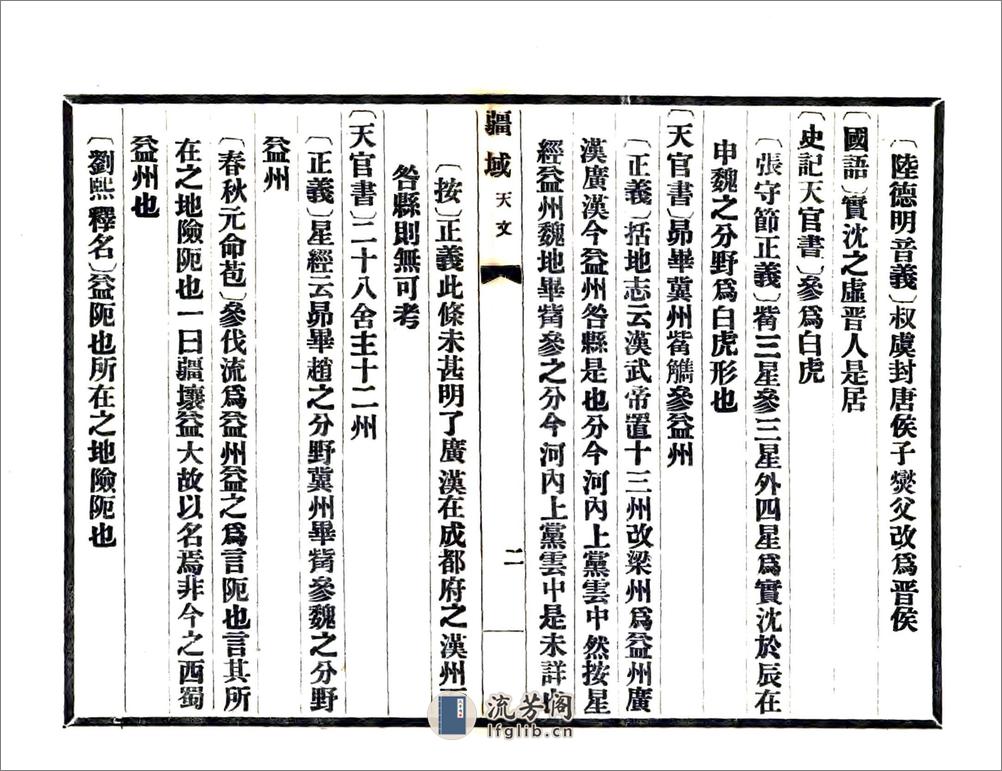 〔陸德明音義〕叔虞封唐侯子燮父改爲晋侯
〔國語〕實沈之虛晋人是居
〔史記天官書〕參爲白虎
〔張守節正義〕觜三星參三星外四星爲實沈於辰在
申魏之分野爲白虎形也
〔天官書〕昴畢冀州觜觿參益州
〔正義〕括地志云漢武帝置十三州改梁州爲益州廣
漢廣漢今益州咎縣是也分今河內上黨雲中然按星
經益州魏地畢觜參之分今河內上黨雲中是未詳也
疆域 天文 二
〔按〕正義此條未甚明了廣漢在成都府之漢州
咎縣則無可考
〔天官書〕二十八舍主十二州
〔正義〕星經云昴畢趙之分野冀州畢觜參魏之分野
益州
〔春秋元命苞〕參伐流爲益州益之爲言阨也言其所
在之地險阨也一曰疆壤益大故以名焉非今之西蜀
益州也
〔劉熙釋名〕益阨也所在之地險阨也
流芳阁
lfglib.cn